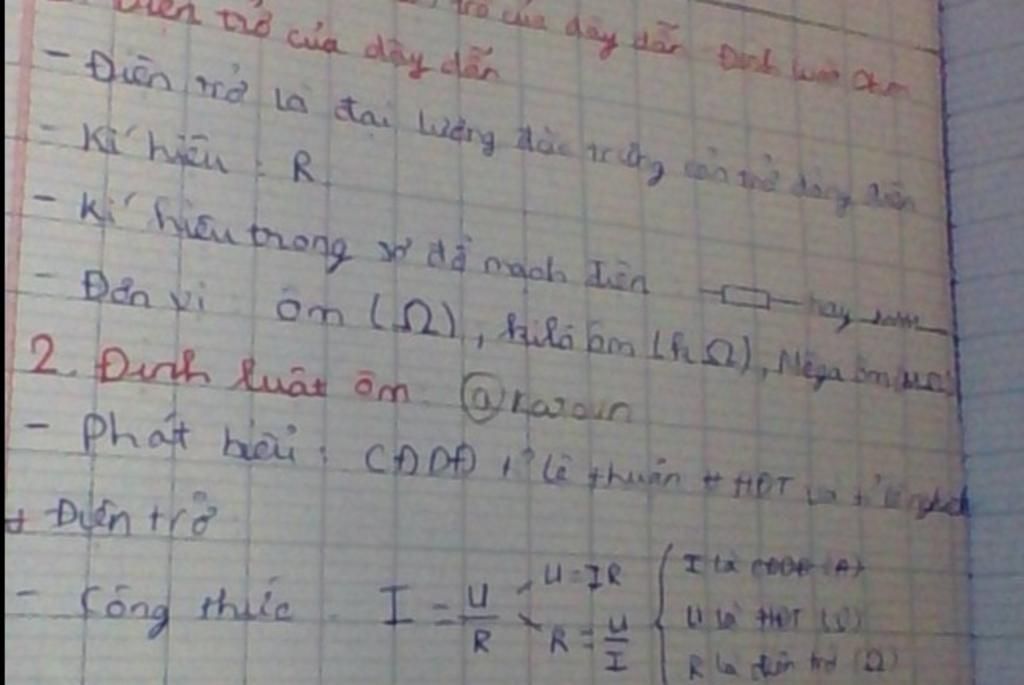 trở của dây dẫn Định luật Ohm
Điện trở của dây dẫn
- Điện trở là đại lượng đặc trưng cản trở dòng điện
- Kí hiệu : R
- Kí hiệu trong sơ đồ mạch điện hay
- Đơn vị ôm (Ω), kilô ôm (kΩ), Mêga ôm (MΩ)
2. Định luật ôm @
- Phát biểu : CĐDĐ tỉ lệ thuận HĐT và tỉ lệ nghịch
+ Điện trở
- Công thức I = U/R U = IR
R = U/I
I là CĐDĐ (A)
U là HĐT
R là điện trở (Ω)